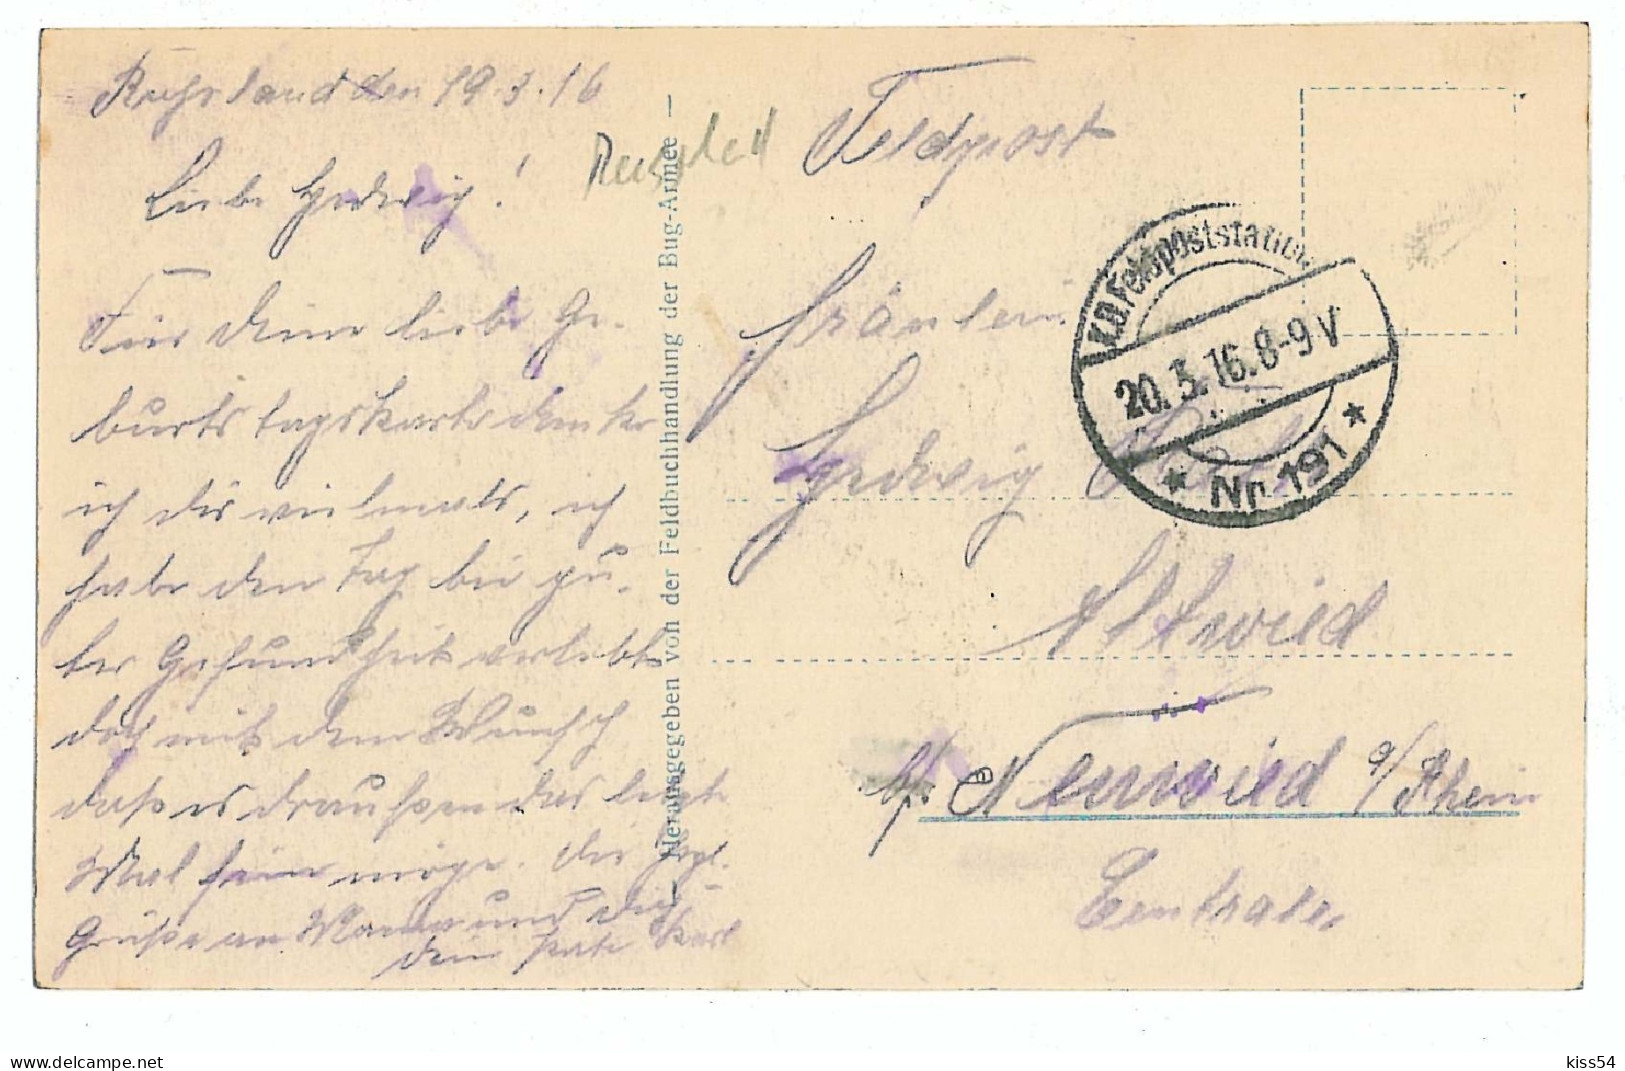 Russland den 19.3.16
Liebe Hedwig!
Für deine liebe Ge-
burtstagskarte danke
ich dir vielmals, ich
habe den Tag bei gu-
ter Gesundheit verlebt
doch mit dem Wunsch
daß es draußen das letzte
Mal sein möge. Die herzl.
Grüße an Mama und dich
dein Pate Karl
Herausgegeben von der Feldbuchhandlung der Bug-Armee
Feldpost
Fräulein
Hedwig
Altwied
b/ Neuwied a/Rhein
Centrale
K.D. Feldpoststation
20.3.16.8-9V
* Nr. 191 *
delcampe.net
kiss54